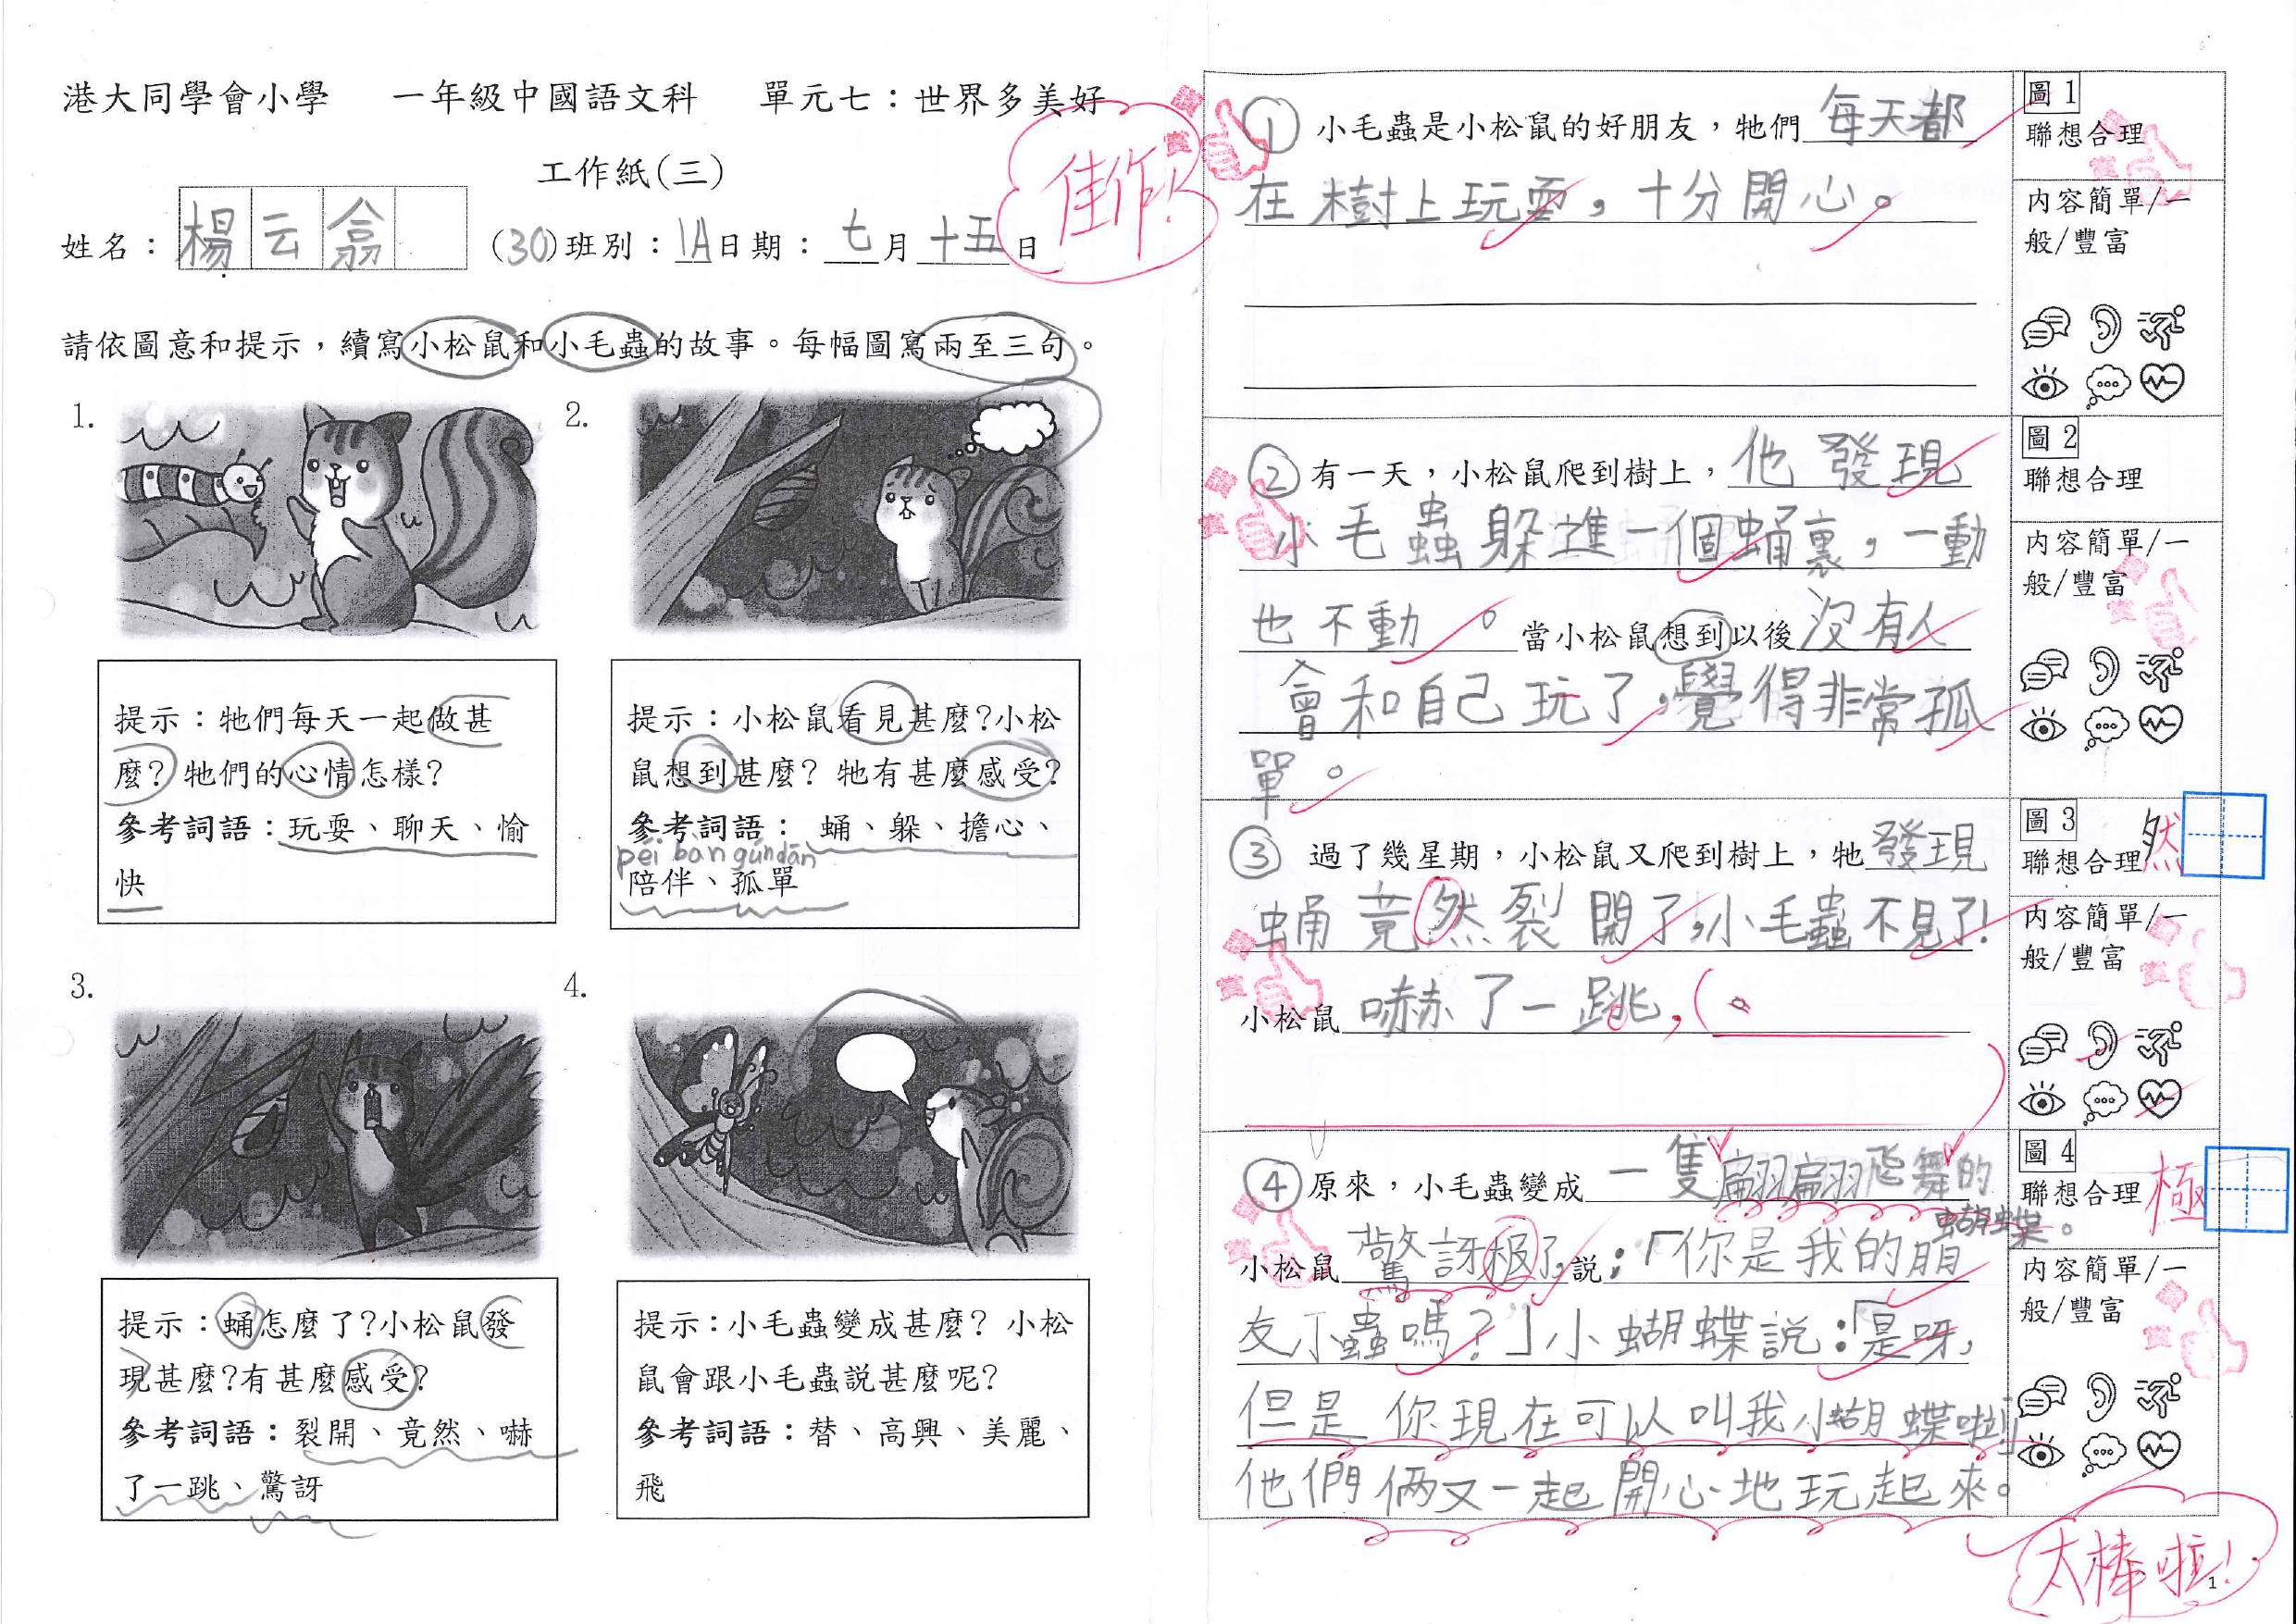 港大同學會小學 一年級中國語文科 單元七：世界多美好
工作紙(三)
佳作！
姓名：楊云翕 (30)班別：1A日期：七月十五日
請依圖意和提示，續寫小松鼠和小毛蟲的故事。每幅圖寫兩至三句。
1.
2.
提示：牠們每天一起做甚
麼？牠們的心情怎樣？
參考詞語：玩耍、聊天、愉
快
提示：小松鼠看見甚麼？小松
鼠想到甚麼？牠有甚麼感受？
參考詞語： 蛹、躲、擔心、
péi bàn gūn dān
陪伴、孤單
3.
4.
提示：蛹怎麼了？小松鼠發
現甚麼？有甚麼感受？
參考詞語：裂開、竟然、嚇
了一跳、驚訝
提示：小毛蟲變成甚麼？小松
鼠會跟小毛蟲說甚麼呢？
參考詞語：替、高興、美麗、
飛
① 小毛蟲是小松鼠的好朋友，牠們每天都
在樹上玩耍，十分開心。
圖 1
聯想合理
內容簡單/一
般/豐富
② 有一天，小松鼠爬到樹上，他發現
小毛蟲躲進一個蛹裏，一動
也不動。當小松鼠想到以後沒有人
會和自己玩了，覺得非常孤
單。
圖 2
聯想合理
內容簡單/一
般/豐富
③ 過了幾星期，小松鼠又爬到樹上，牠發現
蛹竟然裂開了，小毛蟲不見了！
小松鼠嚇了一跳，。
圖 3
聯想合理
然
內容簡單/一
般/豐富
④ 原來，小毛蟲變成一隻翩翩飛舞的
蝴蝶。
小松鼠驚訝极了，說：「你是我的朋
友小蟲嗎？」小蝴蝶說：「是呀，
但是你現在可以叫我小蝴蝶啦」
他們倆又一起開心地玩起來。
圖 4
聯想合理
極
內容簡單/一
般/豐富
太棒啦！
1